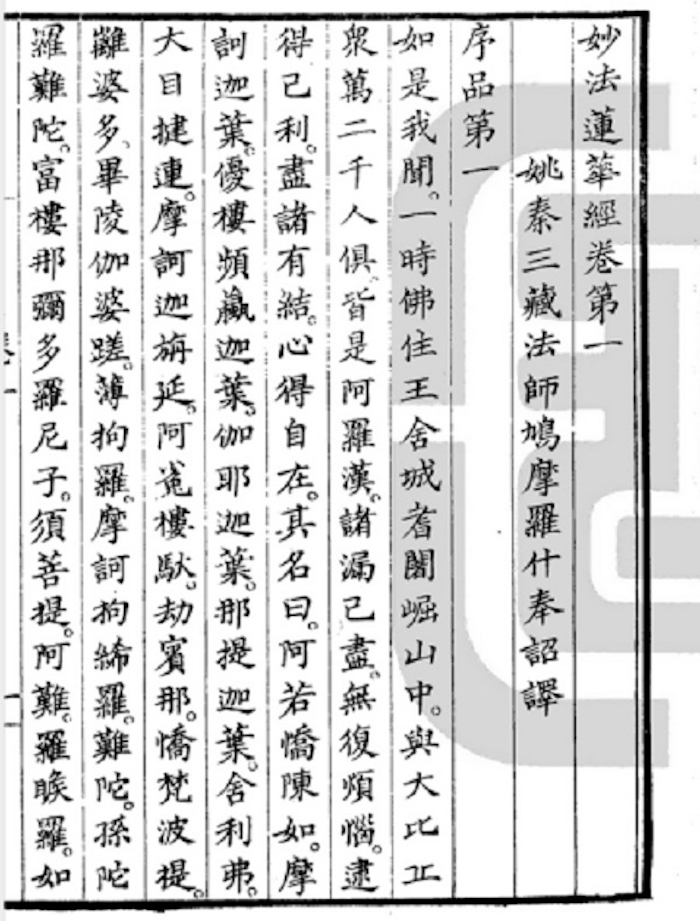 妙法蓮華經卷第一
姚秦三藏法師鳩摩羅什奉詔譯
序品第一
如是我聞。一時佛住王舍城耆闍崛山中。與大比丘
眾萬二千人俱。皆是阿羅漢。諸漏已盡。無復煩惱。逮
得己利。盡諸有結。心得自在。其名曰。阿若憍陳如。摩
訶迦葉。優樓頻蠃迦葉。伽耶迦葉。那提迦葉。舍利弗。
大目揵連。摩訶迦旃延。阿㝹樓馱。劫賓那。憍梵波提。
離婆多。畢陵伽婆蹉。薄拘羅。摩訶拘絺羅。難陀。孫陀
羅難陀。富樓那彌多羅尼子。須菩提。阿難。羅睺羅。如